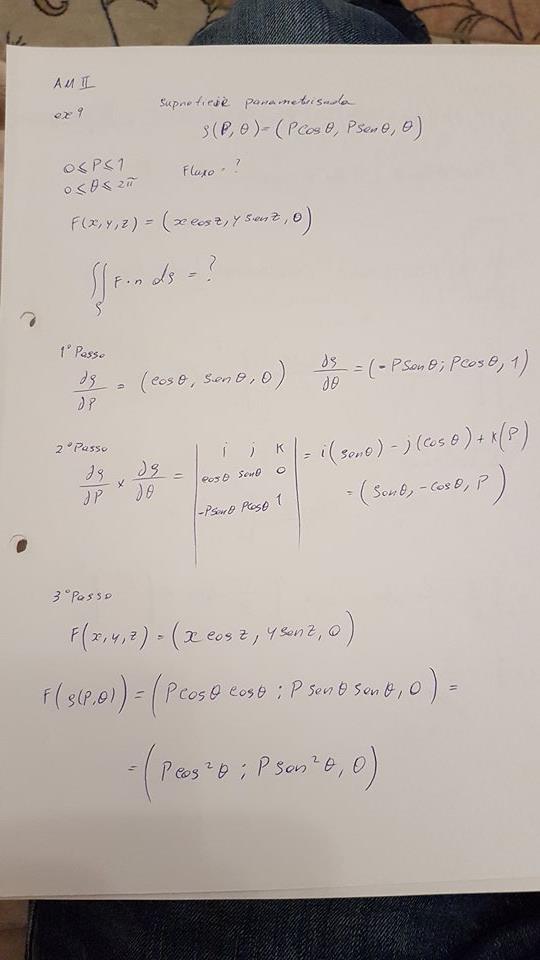 AM II
ex 9
Superficie parametrisada
S(P, θ) = (P cos θ, P sen θ, θ)
0 ≤ P ≤ 1
0 ≤ θ ≤ 2π
Fluxo = ?
F(x, y, z) = (x cos z, y sen z, 0)
∬_S F · n ds = ?
1º Passo
∂S/∂P = (cos θ, sen θ, 0) ∂S/∂θ = (-P sen θ; P cos θ, 1)
2º Passo
∂S/∂P × ∂S/∂θ = | i j K | = i(sen θ) - j(cos θ) + K(P)
| cos θ sen θ 0 |
| -P sen θ P cos θ 1 |
= (sen θ, -cos θ, P)
3º Passo
F(x, y, z) = (x cos z, y sen z, 0)
F(S(P, θ)) = (P cos θ cos θ ; P sen θ sen θ, 0) =
= (P cos² θ ; P sen² θ, 0)